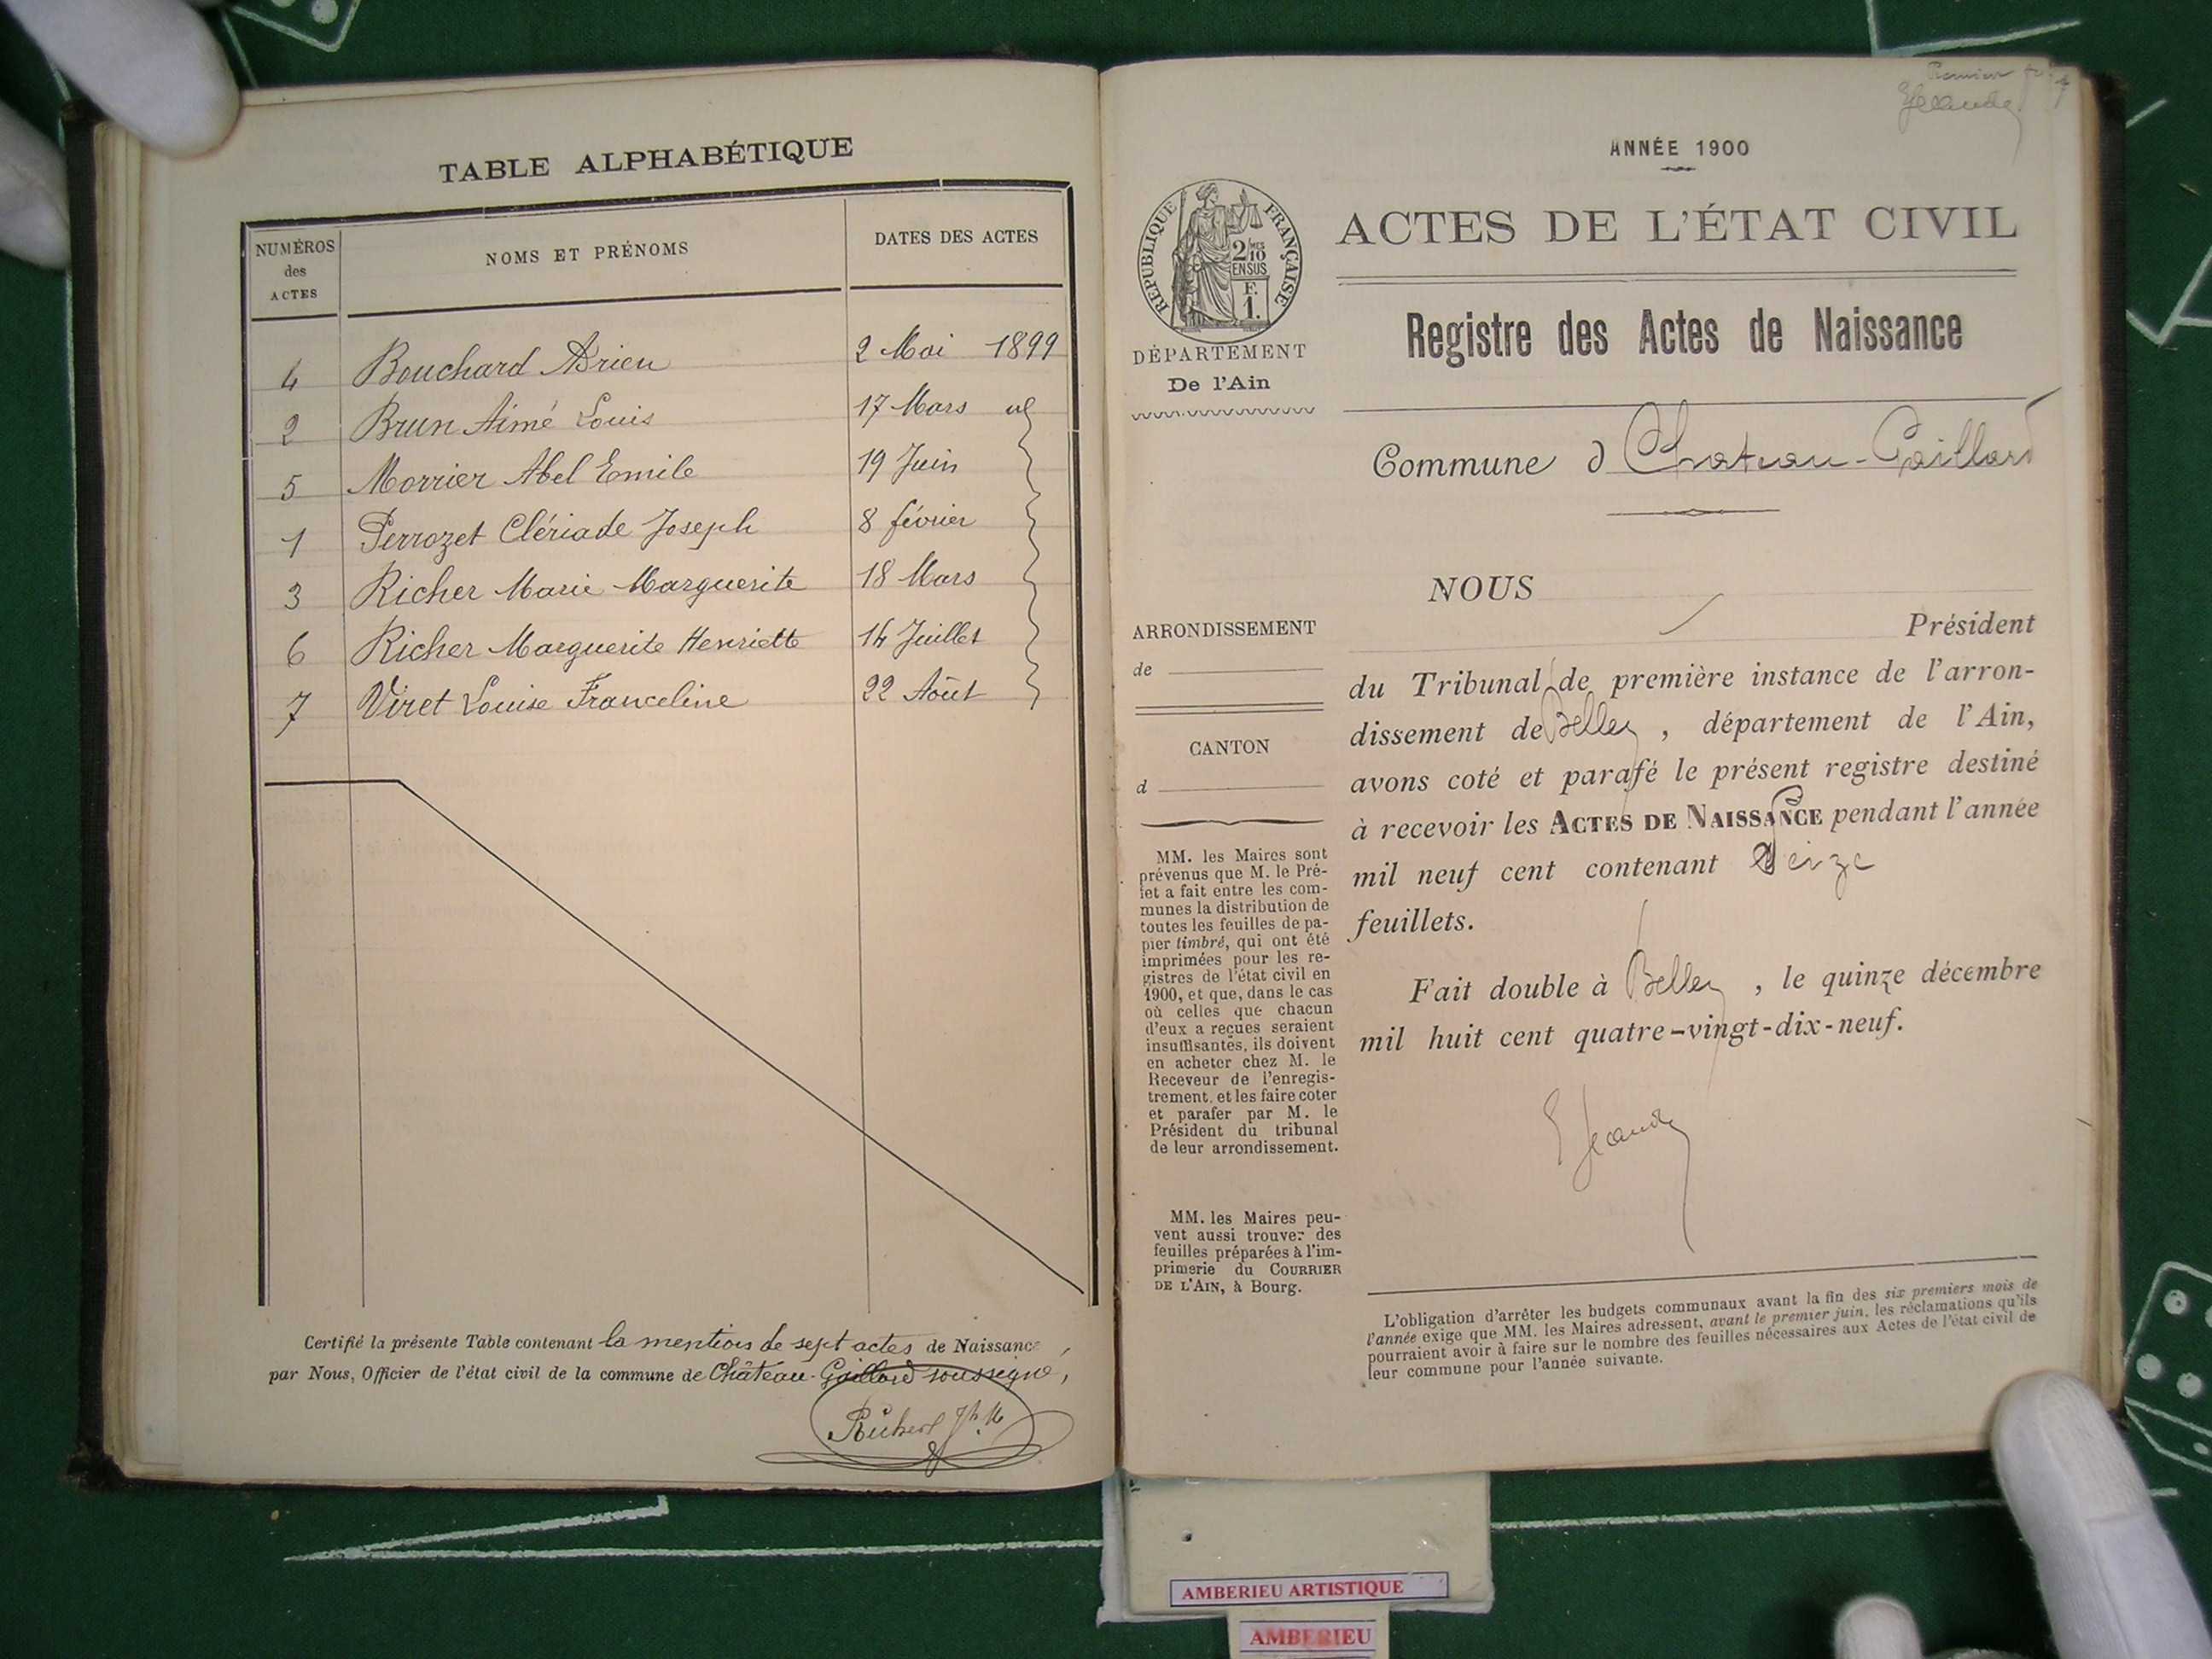 TABLE ALPHABÉTIQUE
NUMÉROS des ACTES
NOMS ET PRÉNOMS
DATES DES ACTES
4 Bouchard Adrien 2 Mai 1899
2 Brun Aimé Louis 17 Mars
5 Morrier Abel Emile 19 Juin
1 Perrozet Clériade Joseph 8 février
3 Richer Marie Marguerite 18 Mars
6 Richer Marguerite Henriette 14 Juillet
7 Viret Louise Franceline 22 Août
Certifié la présente Table contenant la mention de sept actes de Naissance
par Nous, Officier de l'état civil de la commune de Château-Gaillard soussigné,
Premier
ANNÉE 1900
RÉPUBLIQUE FRANÇAISE
2/10 MES
EN SUS
F.
1.
ACTES DE L'ÉTAT CIVIL
DÉPARTEMENT
De l'Ain
Registre des Actes de Naissance
Commune d Chateau-Gaillard
NOUS
Président
du Tribunal de première instance de l'arron-
dissement de Belley, département de l'Ain,
avons coté et parafé le présent registre destiné
à recevoir les ACTES DE NAISSANCE pendant l'année
mil neuf cent contenant
feuillets.
Fait double à Belley, le quinze décembre
mil huit cent quatre-vingt-dix-neuf.
ARRONDISSEMENT
de
CANTON
d
MM. les Maires sont
prévenus que M. le Pré-
fet a fait entre les com-
munes la distribution de
toutes les feuilles de pa-
pier timbré, qui ont été
imprimées pour les re-
gistres de l'état civil en
1900, et que, dans le cas
où celles que chacun
d'eux a reçues seraient
insuffisantes, ils doivent
en acheter chez M. le
Receveur de l'enregis-
trement, et les faire coter
et parafer par M. le
Président du tribunal
de leur arrondissement.
MM. les Maires peu-
vent aussi trouver des
feuilles préparées à l'im-
primerie du COURRIER
DE L'AIN, à Bourg.
L'obligation d'arrêter les budgets communaux avant la fin des six premiers mois de
l'année exige que MM. les Maires adressent, avant le premier juin, les réclamations qu'ils
pourraient avoir à faire sur le nombre des feuilles nécessaires aux Actes de l'état civil de
leur commune pour l'année suivante.
AMBERIEU ARTISTIQUE
AMBERIEU